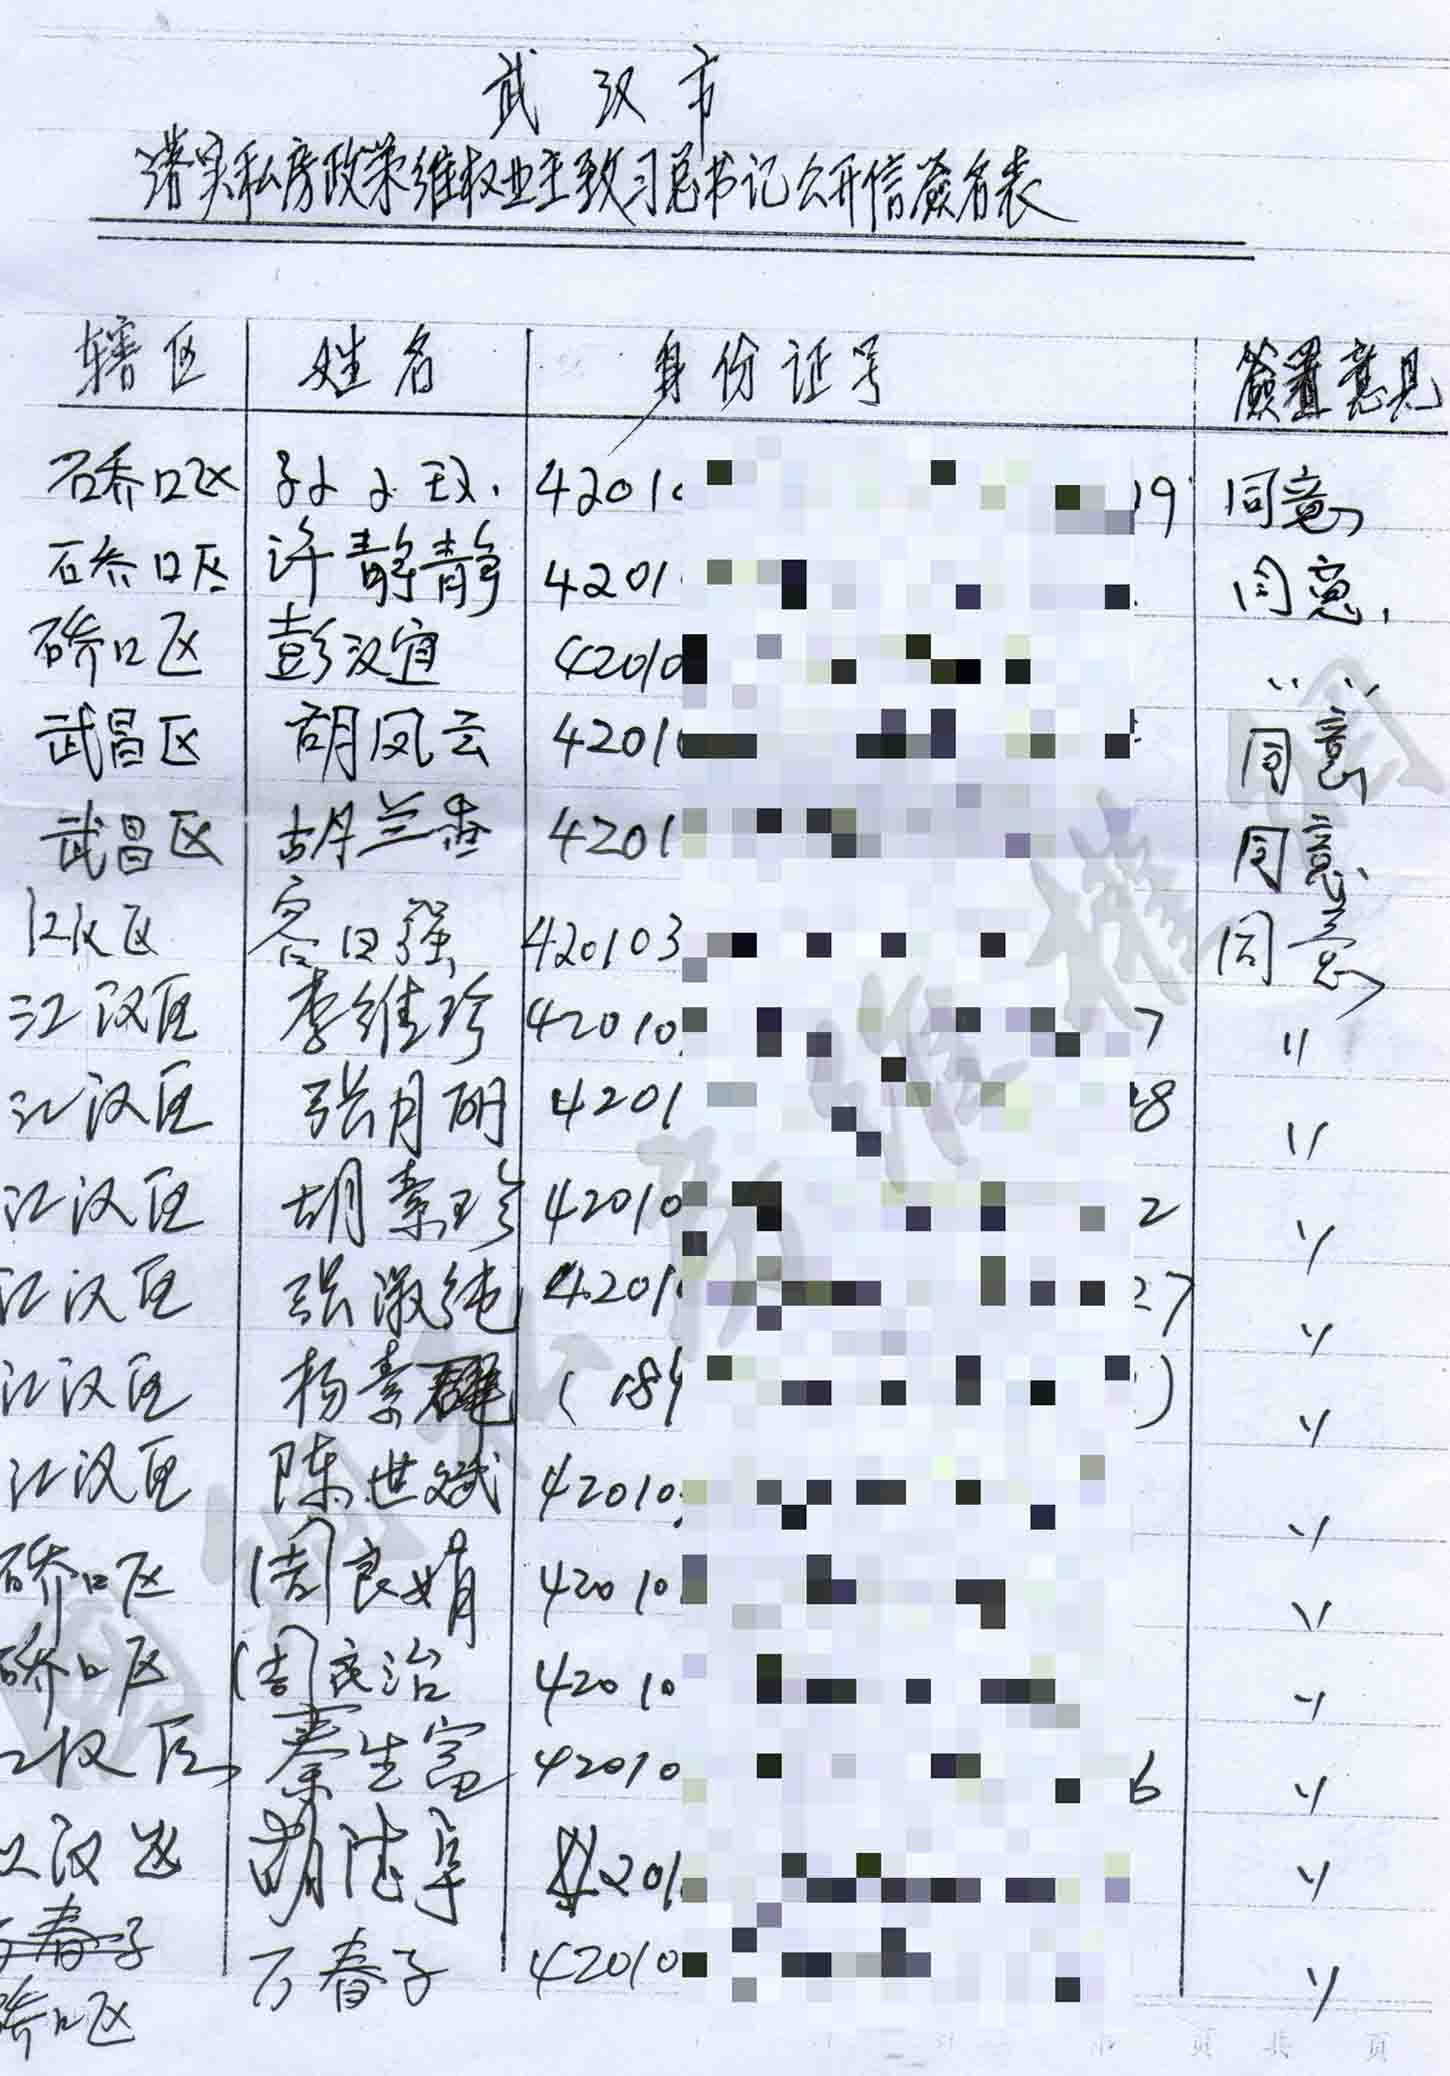 武汉市
落实私房政策维权业主致习总书记公开信签名表
辖区 姓名 身份证号 签置意见
硚口区 孙 4201 19 同意
硚口区 许静静 4201 同意
硚口区 彭汉宜 42010 〃 〃
武昌区 胡凤云 4201 同意
武昌区 胡兰香 4201 同意
江汉区 容曰强 420103 同意
江汉区 李维珍 42010 7 〃
江汉区 张月明 4201 28 〃
江汉区 胡素珍 42010 2 〃
江汉区 张淑纯 4201 27 〃
江汉区 杨素 (189 ) 〃
江汉区 陈世斌 42010 〃
硚口区 周良娟 42010 〃
硚口区 周良治 42010 〃
江汉区 秦生富 42010 6 〃
江汉区 胡 4201 〃
万春子
硚口区 万春子 42010 〃